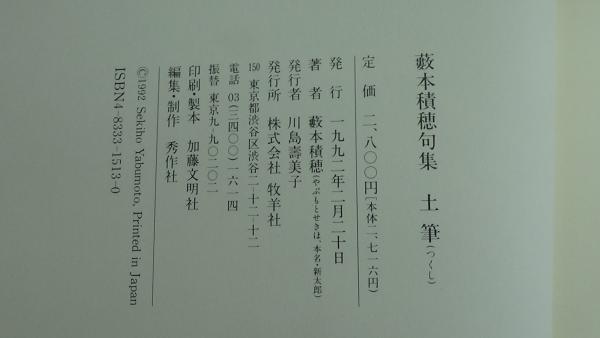 藪本積穂句集　土筆(つくし)
定価　二、八〇〇円[本体二、七一六円]
発行　一九九二年二月二十日
著者　藪本積穂(やぶもとせきほ、本名・新太郎)
発行者　川島壽美子
発行所　株式会社 牧羊社
150 東京都渋谷区渋谷二-十二-十二
電話　03(三四〇〇)一六一四
振替　東京九-九〇二〇二
印刷・製本　加藤文明社
編集・制作　秀作社
©1992 Sekiho Yabumoto, Printed in Japan
ISBN4-8333-1513-0